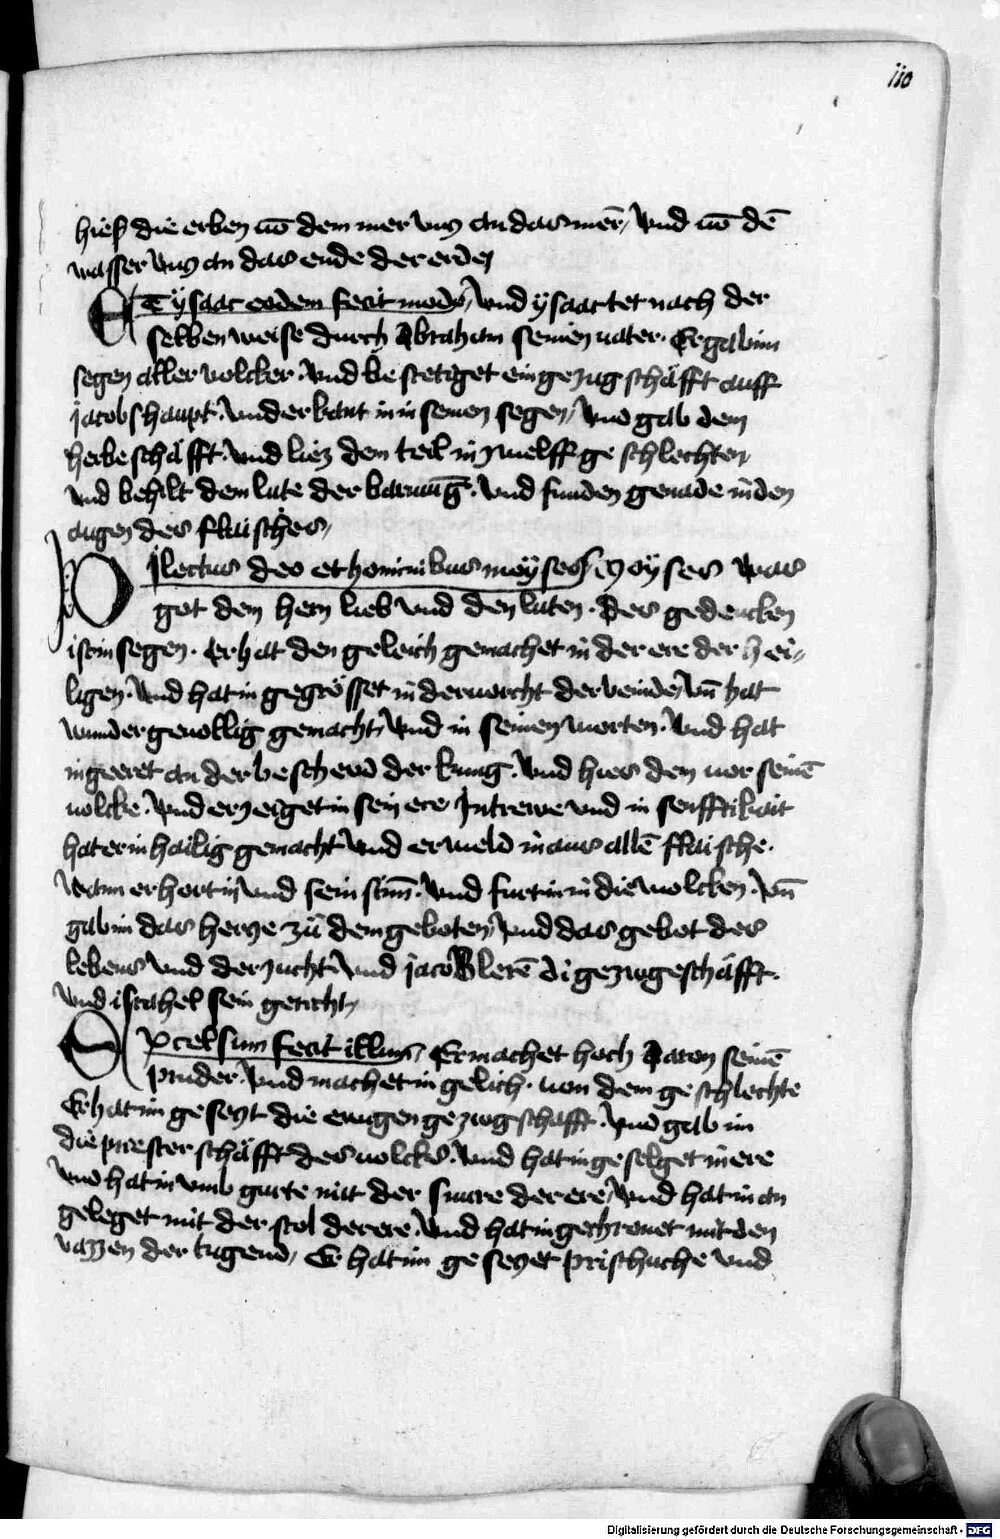 110
hies die erben uō dem mer uns an das mēr / Und uō dē
wasser uns an das ende der erdn
ET ysaac eodem fecit modo / Und ysaac tet nach der
selben weise durch Abraham seinen uater · Er gab im
segen aller volcker · Und bestetiget ein gezugschäfft auff
jacobs haupt · Und erkant in in seinen segen / Und gab dem
herbeschäfft · Und liez dem teil in zwelff geschlechten
und behilt dem lute der barmūg · Und funden genade in den
augen des flaisches /
DIlectus deo et hominibus moyses Moyses was
got dem hern lieb Und den luten · Des gedencken
ist in segen · Er hat den geleich gemachet in der ere der hei=
ligen · Und hat in gegrösset in der uorcht der veinde / Un̄ hat
wunder geuollig gemacht / Und in seinen worten · Und hat
in geeret an der bescheud der kung · Und hies den uor seinē
uolcke · Und erzeiget in sein ere In trewe und in senfftikait
hat er in hailig gemacht Und erweld in aus allē flaische ·
Wann er hort in Und sein stim̄ · Und furt in in die wolcken · Un̄
gab im das hercze zu den geboten / Und das gebot des
lebens Und der zucht · Und jacob lerē di gezugeschäfft ·
Und israhel sein gericht /
EXcelsum fecit illum / Er machet hoch Aaron seinē
pruder · Und machet in gelich · von dem geschlechte
Er hat im gesetzt die ewigen gezugschafft · Und gab im
die priesterschäfft des uolcks · Und hat in geselget in ere
Und hat in umb gurte mit der snure der ere / Und hat in an
geleget mit der stol der ere · Und hat in gechronet mit den
vazzen der tugend / Er hat im gesetzet prischuche und
Digitalisierung gefördert durch die Deutsche Forschungsgemeinschaft - DFG